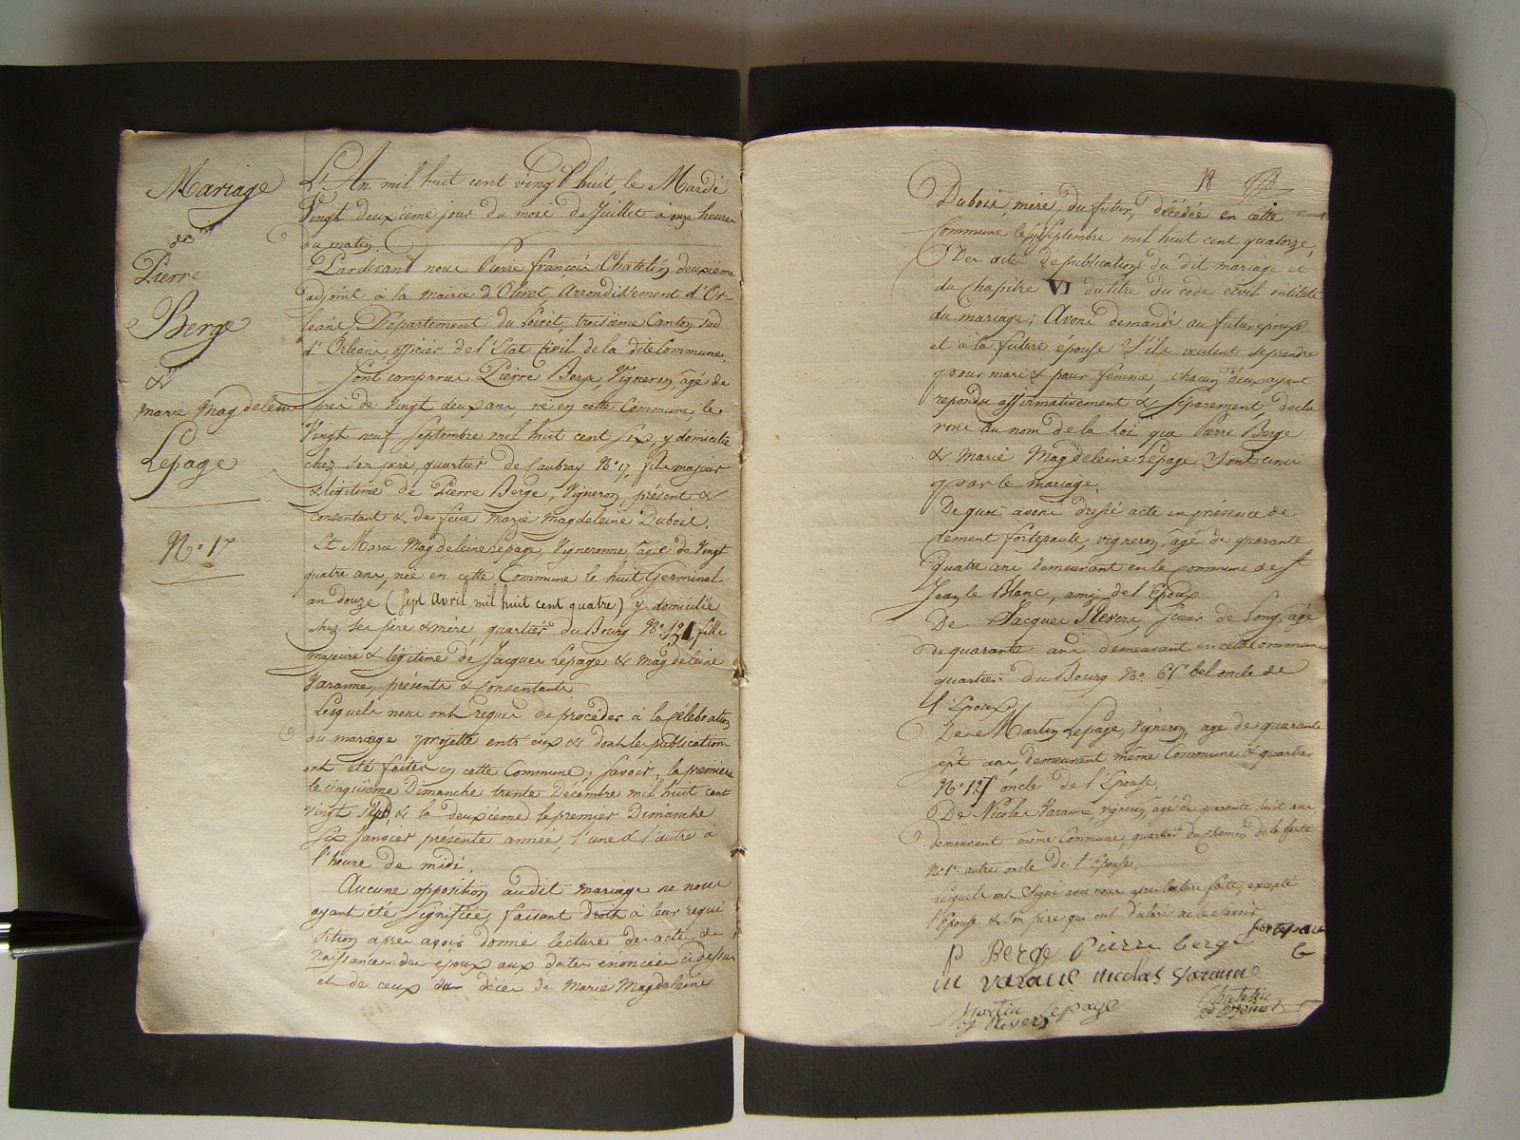 Mariage
de
Pierre
Berge
&
Marie Magdeleine
Lepage
N.º 17
L'An mil huit cent vingt huit, le Mardi
Vingt deuxieme jour du mois de Juillet à onze heures
du matin.
Pardevant nous Pierre françois Chatelin deuxième
adjoint à la mairie d'Olivet, Arrondissement d'Or-
léans, Département du Loiret, troisième Canton sud
d'Orléans, officier de l'État Civil de la dite Commune,
Sont comparus Pierre Berge Vigneron, âgé de
près de Vingt deux ans, né en cette Commune, le
Vingt neuf Septembre mil huit cent six, y domicilié
chez son père, quartier de Caubray N.º 17, fils majeur
& légitime de Pierre Berge, Vigneron, présent &
consentant & de feue Marie Magdeleine Dubois.
Et Marie Magdeleine Lepage, Vigneronne, âgée de Vingt
quatre ans, née en cette Commune le huit Germinal
an douze (Sept Avril mil huit cent quatre) y domiciliée
chez ses père & mère, quartier du Bourg N.º 121, fille
majeure & légitime de Jacques Lepage & Magdeleine
Varanne, présents & Consentants
Lesquels nous ont requis de procéder à la célébration
du mariage projetté entr'eux & dont les publications
ont été faites en cette Commune, Savoir, la premiere
le cinquième Dimanche trente Décembre mil huit cent
vingt Sept, & la deuxième le premier Dimanche
Six Janvier présente année, l'une & l'autre à
l'heure de midi.
Aucune opposition audit mariage ne nous
ayant été Signifiée, faisant droit à leur requi
sition après avoir donné lecture des actes de
naissances des époux aux dates énoncées ci dessus
et de ceux du décès de Marie Magdeleine
18
Dubois, mère du futur, décédée en cette
Commune le Septembre mil huit cent quatorze,
Des actes de publications du dit mariage et
du Chapitre VI du titre du code civil intitulé
du mariage; Avons demandé au futur époux
et à la future épouse S'ils veulent se prendre
pour mari & pour femme, chacun d'eux ayant
répondu affirmativement & Séparément, décla
rons au nom de la loi que Pierre Berge
& Marie Magdeleine Lepage Sont unis
par le mariage.
De quoi avons dressé acte en présence de
Clément fortepaule, vigneron, âgé de quarante
quatre ans demeurant en la commune de St
Jean le Blanc, ami de l'Epoux
De Jacques Rivers, Scieur de Long, agé
de quarante ans demeurant en cette Commune
quartier du Bourg N.º 65 bel oncle de
l'Epoux
De Martin Lepage, Vigneron, age de quarante
sept ans, demeurant même Commune & quartier
N.º 125 oncle de l'Epouse.
De Nicolas Varanne, vigneron, âgé de quarante huit ans
demeurant même Commune, quartier du chemin de la ferté
N.º 1er autre oncle de l'Epouse,
lesquels ont Signé avec nous après lecture faite, excepté
l'Epouse & son père qui ont déclaré ne le Savoir
fortepaule
P Berge Pierre berge
m varane nicolas Varanne
Martin Lepage
J Rivers
Chatelin
adjoint